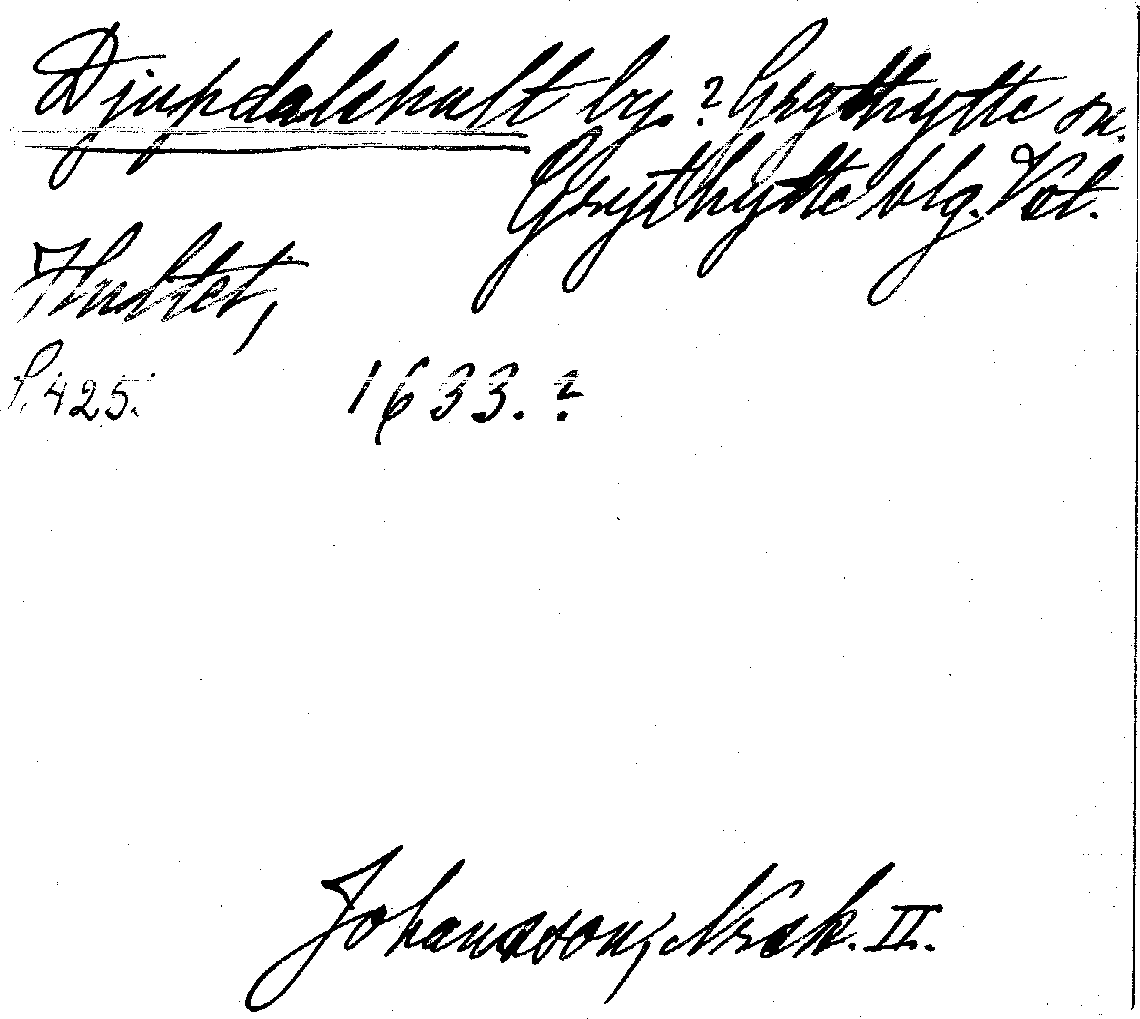 Djupdalshult by.? Grythytte sn.
Grythytte blg. Vstl.
Hultet,
S. 425. 1633.?
Johansson, Norsk. II.